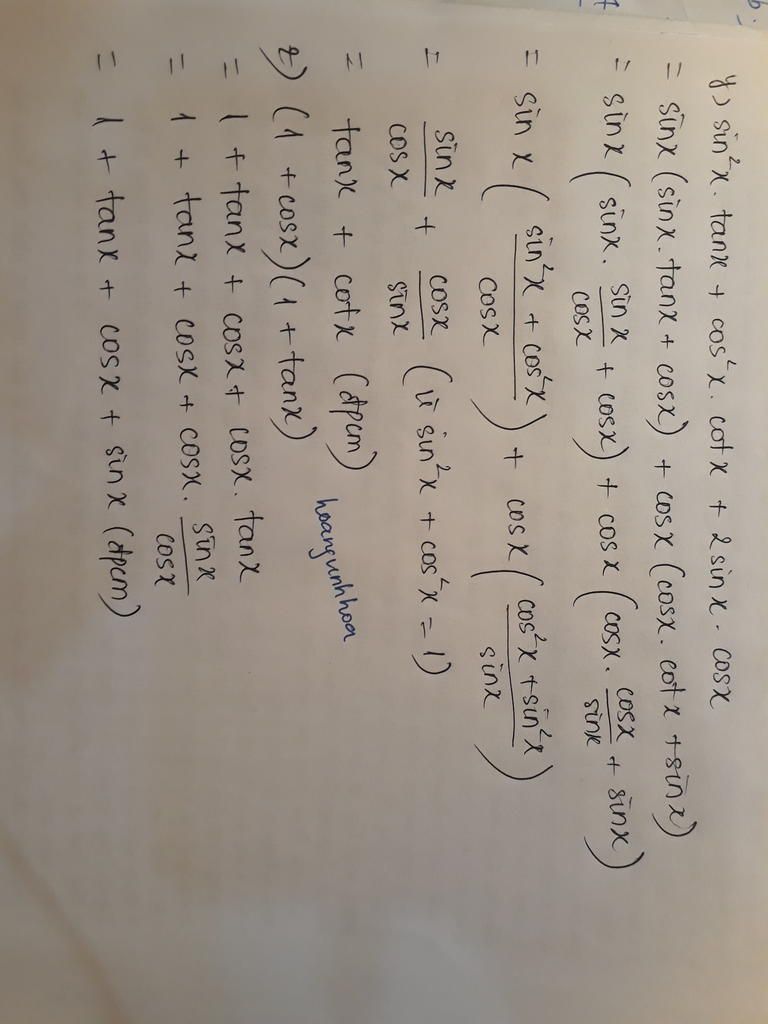 y) sin²x. tanx + cos²x. cotx + 2 sinx. cosx
= sinx (sinx. tanx + cosx) + cosx (cosx. cotx + sinx)
= sinx ( sinx. sinx/cosx + cosx) + cosx ( cosx. cosx/sinx + sinx)
= sinx ( (sin²x + cos²x)/cosx ) + cosx ( (cos²x + sin²x)/sinx )
= sinx/cosx + cosx/sinx (vì sin²x + cos²x = 1)
= tanx + cotx (đpcm)
z) (1 + cosx)(1 + tanx)
hoangunhhoa
= 1 + tanx + cosx + cosx. tanx
= 1 + tanx + cosx + cosx. sinx/cosx
= 1 + tanx + cosx + sinx (đpcm)